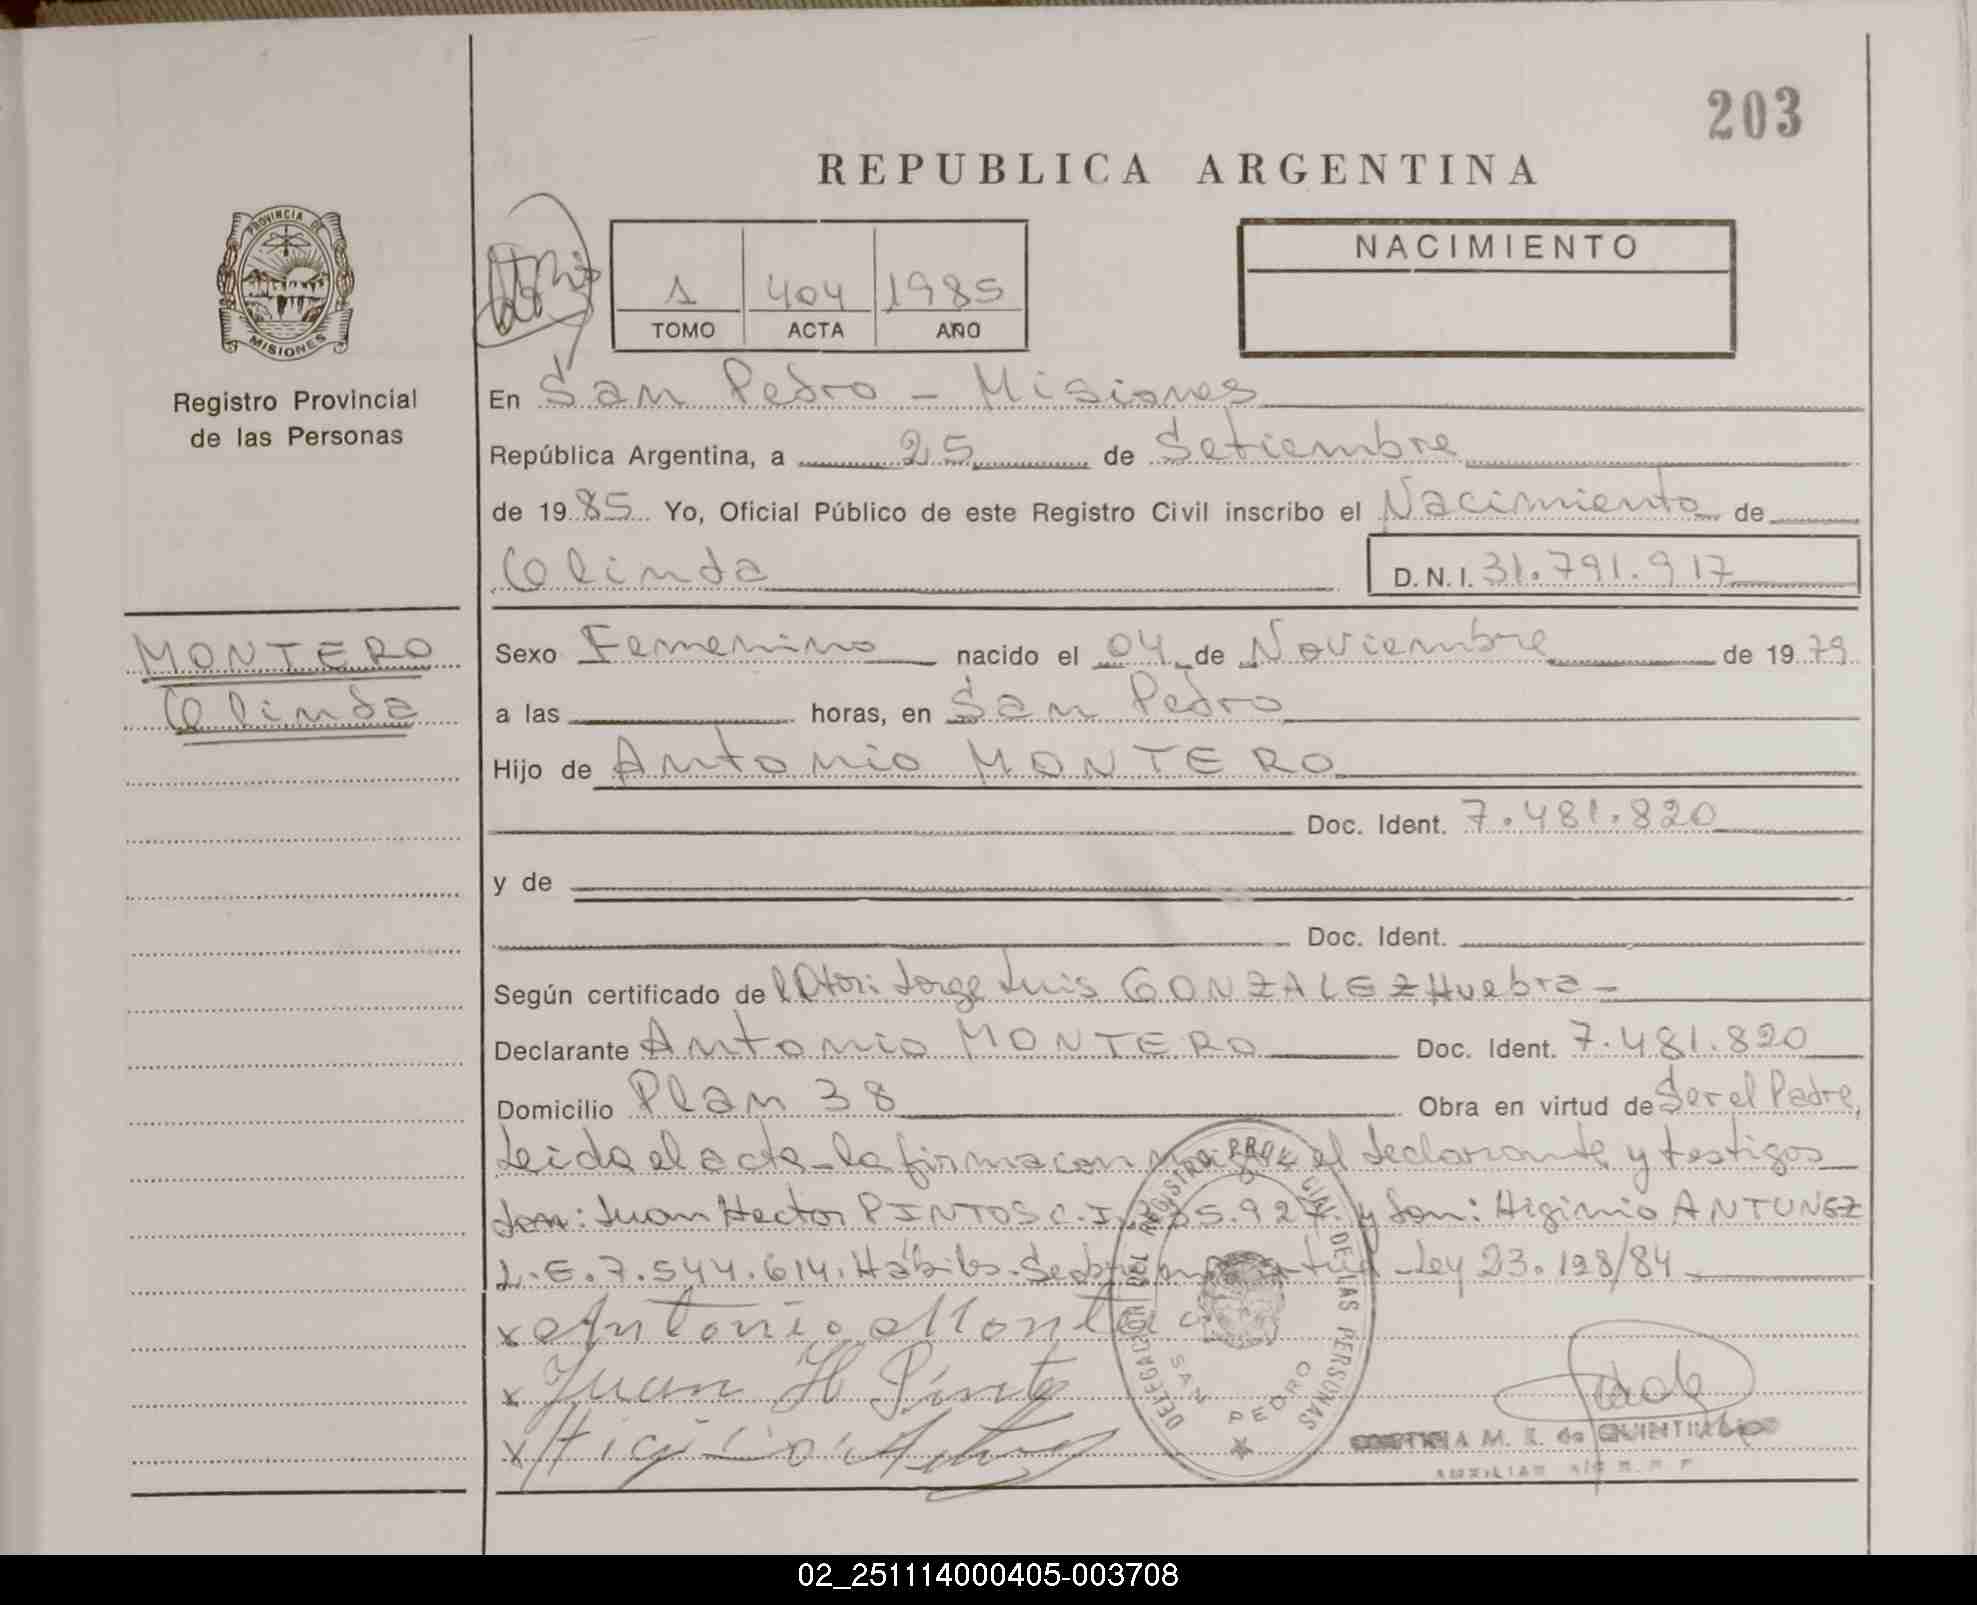 203
REPUBLICA ARGENTINA
PROVINCIA DE
MISIONES
Registro Provincial
de las Personas
1 404 1985
TOMO ACTA AÑO
NACIMIENTO
En San Pedro - Misiones
República Argentina, a 25 de Setiembre
de 1985 Yo, Oficial Público de este Registro Civil inscribo el Nacimiento de
Olinda D.N.I. 31.791.917
MONTERO
Olinda
Sexo Femenino nacido el 04 de Noviembre de 1979
a las horas, en San Pedro
Hijo de Antonio MONTERO
Doc. Ident. 7.481.820
y de
Doc. Ident.
Según certificado de Jorge Luis GONZALEZ Huebra -
Declarante Antonio MONTERO Doc. Ident. 7.481.820
Domicilio Plan 38 Obra en virtud de Ser el Padre,
Leida el acta la firma con el declarante y testigos
don: Juan Hector PINTOS C.I. y don: Higinio ANTUNEZ
L.E. 7.544.614. Hábiles. Ley 23.128/84
x Antonio Monte
x Juan H Pinto
x Higinio
DELEGACION DEL REGISTRO PROVINCIAL DE LAS PERSONAS
SAN PEDRO
M. E. de QUINTIN
AUXILIAR
02_251114000405-003708